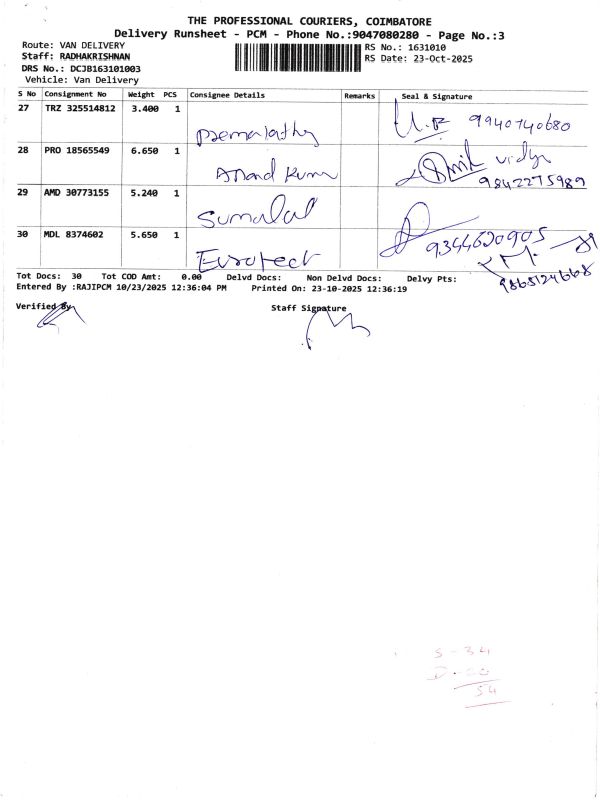 THE PROFESSIONAL COURIERS, COIMBATORE
Delivery Runsheet - PCM - Phone No.:9047080280 - Page No.:3
Route: VAN DELIVERY
RS No.: 1631010
Staff: RADHAKRISHNAN
RS Date: 23-Oct-2025
DRS No.: DCJB163101003
Vehicle: Van Delivery
S No Consignment No Weight PCS Consignee Details Remarks Seal & Signature
27 TRZ 325514812 3.400 1 Premalatha 9940740680
28 PRO 18565549 6.650 1 Anand Kumar vidya 9842275989
29 AMD 30773155 5.240 1 Sumalal 9344620905
30 MDL 8374602 5.650 1 Eurotech 9865124668
Tot Docs: 30 Tot COD Amt: 0.00 Delvd Docs: Non Delvd Docs: Delvy Pts:
Entered By :RAJIPCM 10/23/2025 12:36:04 PM Printed On: 23-10-2025 12:36:19
Verified By
Staff Signature
S - 34
54